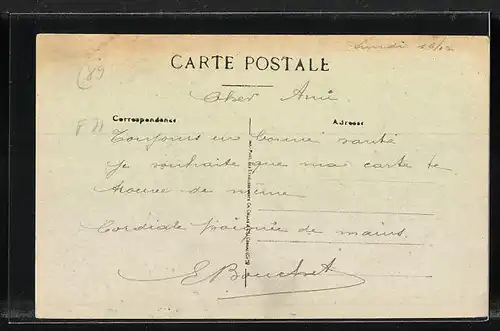 Lundi
(89
CARTE POSTALE
Cher Ami
F 21
Correspondance
Adresse
Toujours en bonne santé
je souhaite que ma carte te
trouve de même
Cordiale poignée de mains.